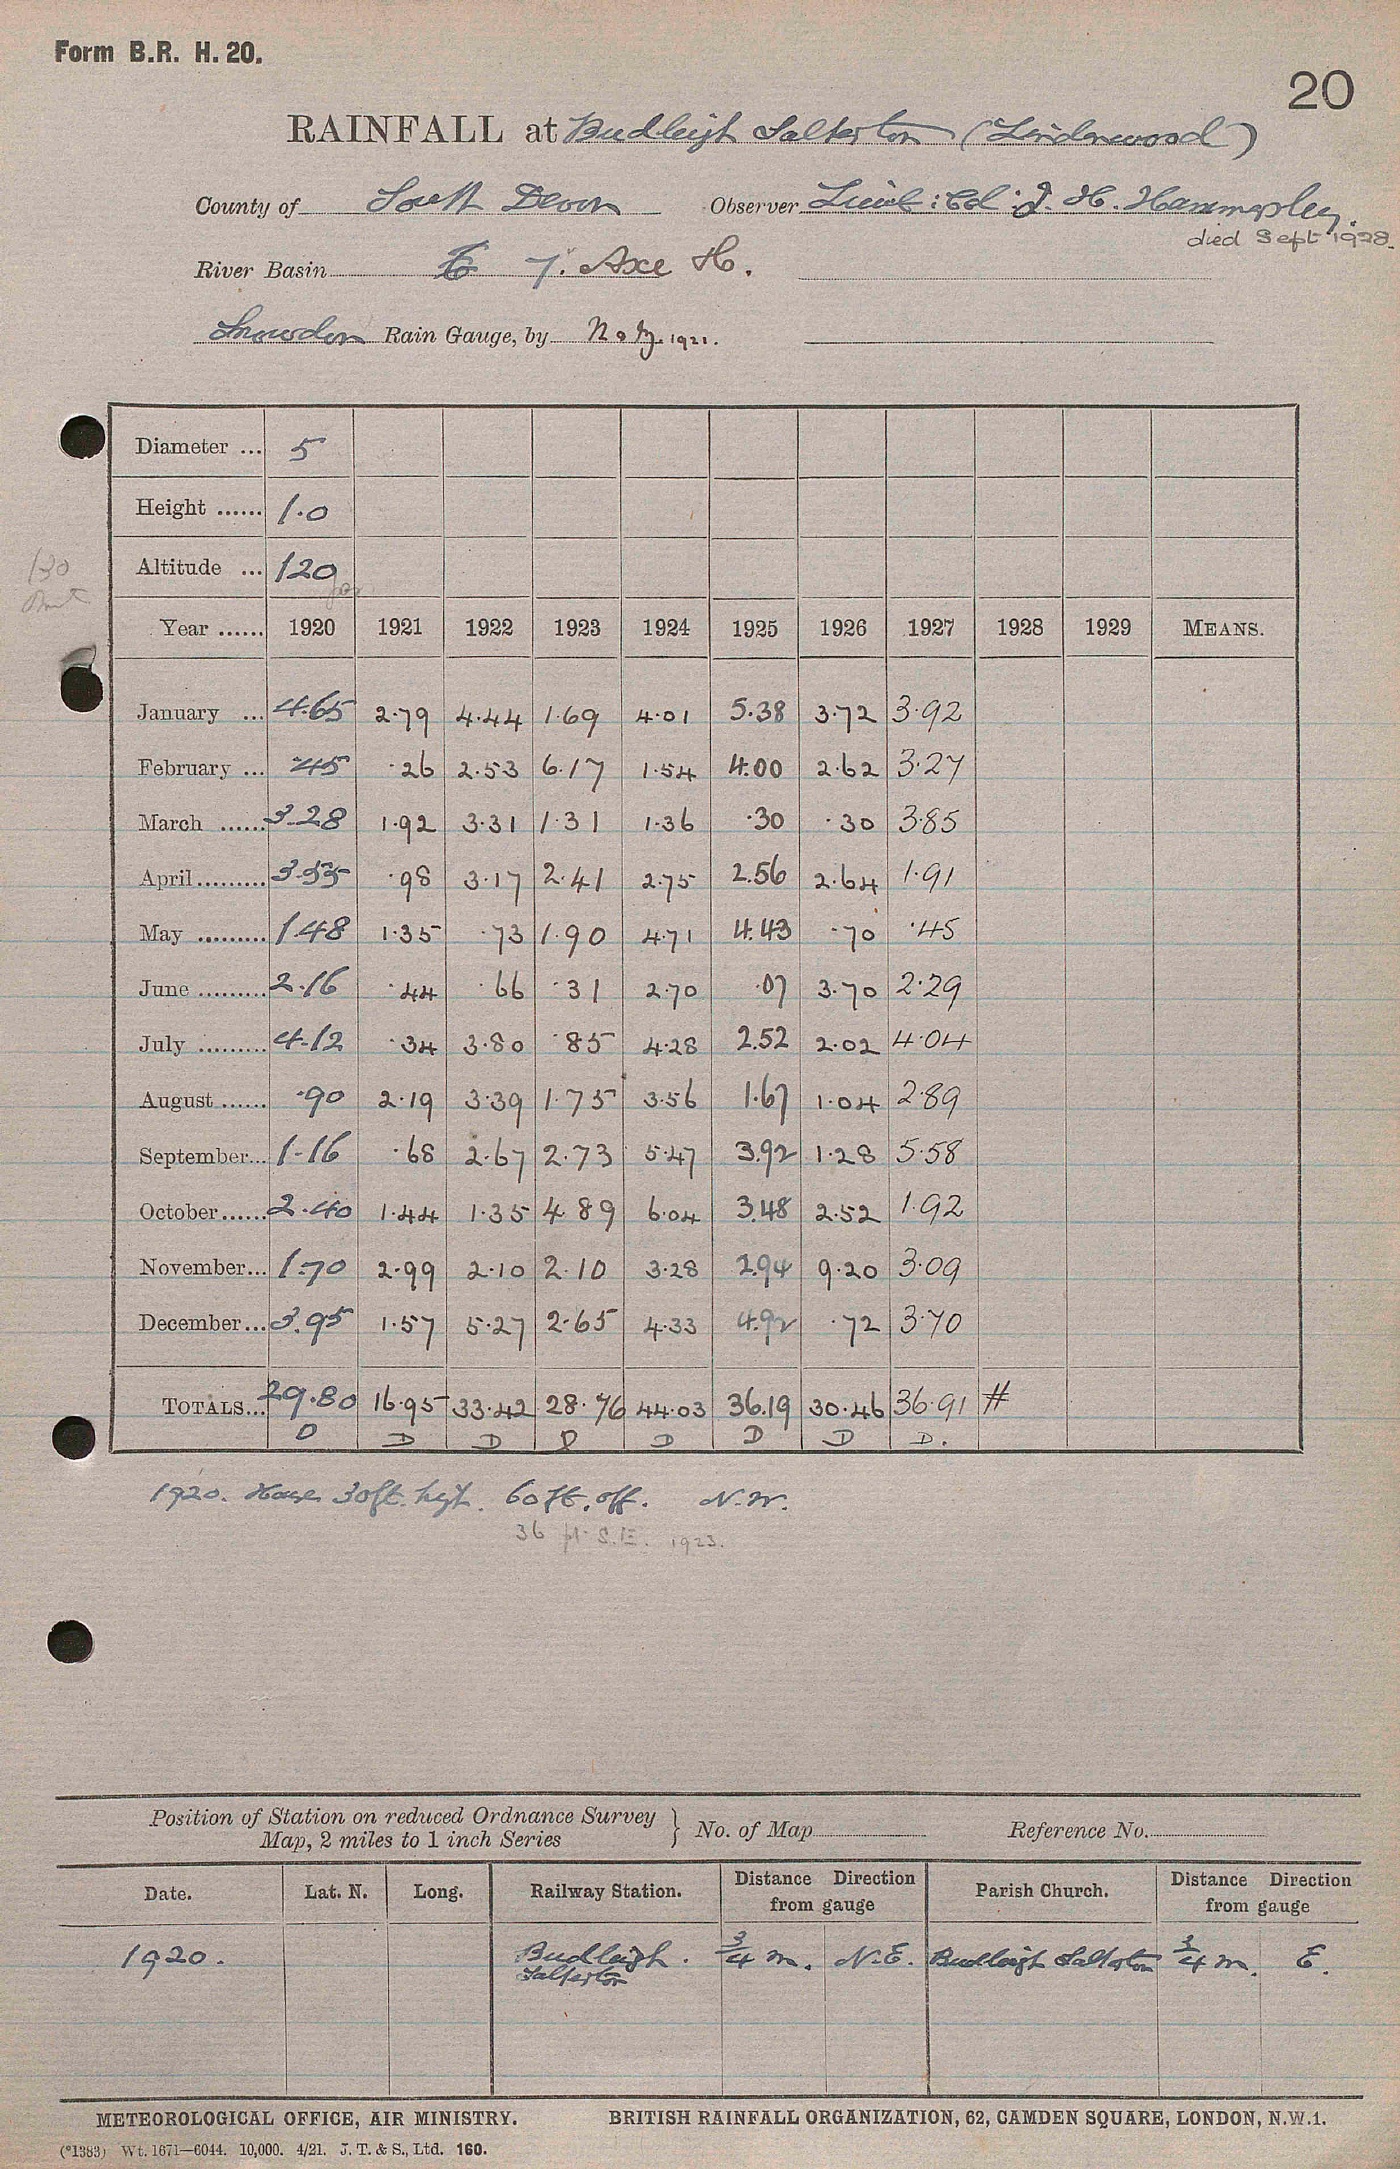 Form B.R. H. 20.
20
RAINFALL at Budleigh Salterton (Lindenwood)
County of South Devon Observer Lieut: Col: J. H. Hammersley.
died Sept 1928.
River Basin E 7. Axe H.
Snowdon Rain Gauge, by Neg. 1921.
Diameter ... 5
Height ...... 1.0
Altitude ... 120
130
Year ...... 1920 1921 1922 1923 1924 1925 1926 1927 1928 1929 MEANS.
January ... 4.65 2.79 4.44 1.69 4.01 5.38 3.72 3.92
February ... .45 .26 2.53 6.17 1.54 4.00 2.62 3.27
March ...... 3.28 1.92 3.31 1.31 1.36 .30 .30 3.85
April ......... 3.55 .98 3.17 2.41 2.75 2.56 2.64 1.91
May ......... 1.48 1.35 .73 1.90 4.71 4.43 .70 .45
June ......... 2.16 .44 .66 .31 2.70 .07 3.70 2.29
July ......... 4.12 .34 3.80 .85 4.28 2.52 2.02 4.04
August ...... .90 2.19 3.39 1.75 3.56 1.67 1.04 2.89
September... 1.16 .68 2.67 2.73 5.47 3.92 1.28 5.58
October...... 2.40 1.44 1.35 4.89 6.04 3.48 2.52 1.92
November... 1.70 2.99 2.10 2.10 3.28 2.94 9.20 3.09
December... 3.95 1.57 5.27 2.65 4.33 4.92 .72 3.70
TOTALS... 29.80 16.95 33.42 28.76 44.03 36.19 30.46 36.91 #
D D D D D D D D.
1920. House 30ft. high. 60 ft. off. N.W.
36 ft. S.E. 1923.
Position of Station on reduced Ordnance Survey
Map, 2 miles to 1 inch Series } No. of Map Reference No.
Date. Lat. N. Long. Railway Station. Distance Direction from gauge Parish Church. Distance Direction from gauge
1920. Budleigh Salterton. 3/4 m. N.E. Budleigh Salterton 3/4 m. E.
METEOROLOGICAL OFFICE, AIR MINISTRY. BRITISH RAINFALL ORGANIZATION, 62, CAMDEN SQUARE, LONDON, N.W.1.
(*1383) Wt. 1671—6044. 10,000. 4/21. J. T. & S., Ltd. 160.